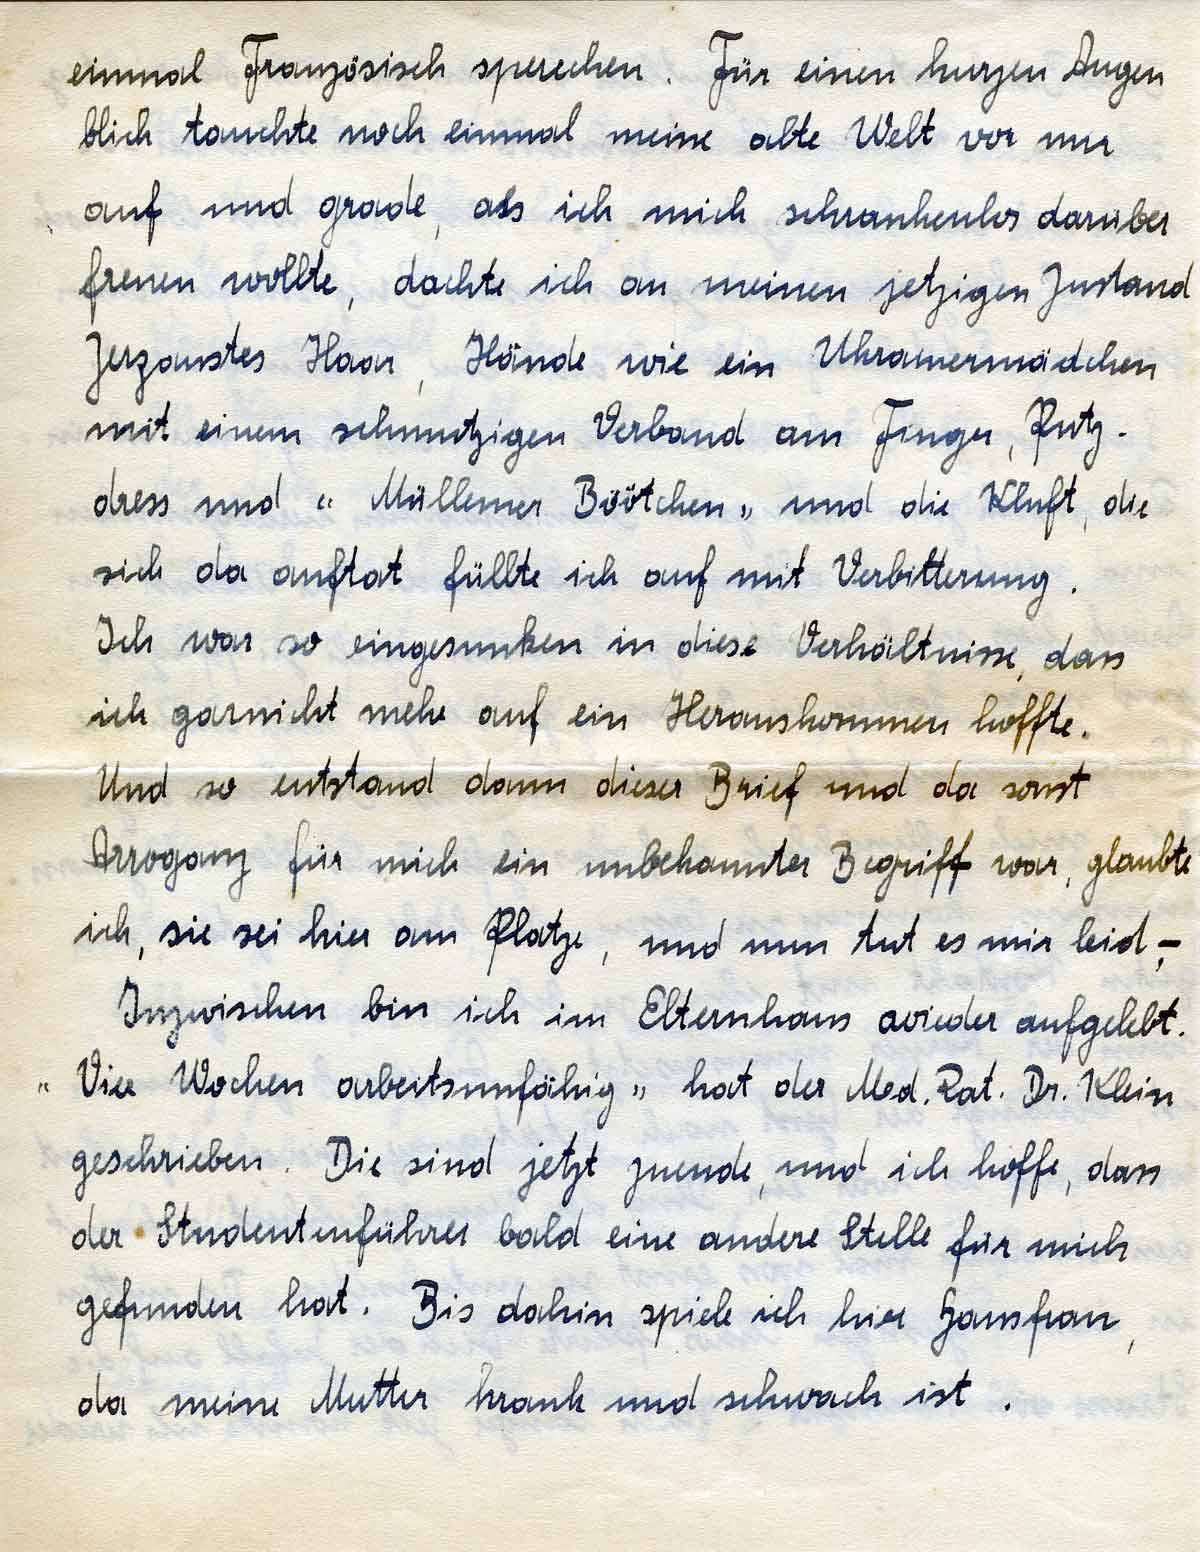 einmal Französisch sprechen. Für einen kurzen Augen
blick tauchte noch einmal meine alte Welt vor mir
auf und grade, als ich mich schrankenlos darüber
freuen wollte, dachte ich an meinen jetzigen Zustand
Zerzaustes Haar, Hände wie ein Ukrainermädchen
mit einem schmutzigen Verband am Finger, Putz-
dress und "Müllemer Böötchen" und die Kluft, die
sich da auftat füllte ich auf mit Verbitterung.
Ich war so eingesunken in diese Verhältnisse, dass
ich garnicht mehr auf ein Herauskommen hoffte.
Und so entstand dann dieser Brief und da sonst
Arroganz für mich ein unbekannter Begriff war, glaubte
ich, sie sei hier am Platze, und nun tut es mir leid,-
Inzwischen bin ich im Elternhaus wieder aufgelebt.
"Vier Wochen arbeitsunfähig" hat der Med. Rat. Dr. Klein
geschrieben. Die sind jetzt zuende, und ich hoffe, dass
der Studentenführer bald eine andere Stelle für mich
gefunden hat. Bis dahin spiele ich hier Hausfrau,
da meine Mutter krank und schwach ist.